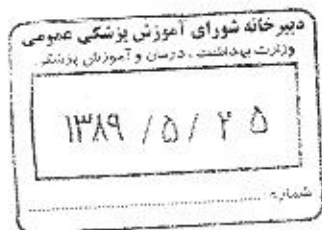 دبیرخانه شورای آموزش پزشکی عمومی
وزارت بهداشت ، درمان و آموزش پزشکی
۱۳۸۹ / ۵ / ۲ ۵
شماره: